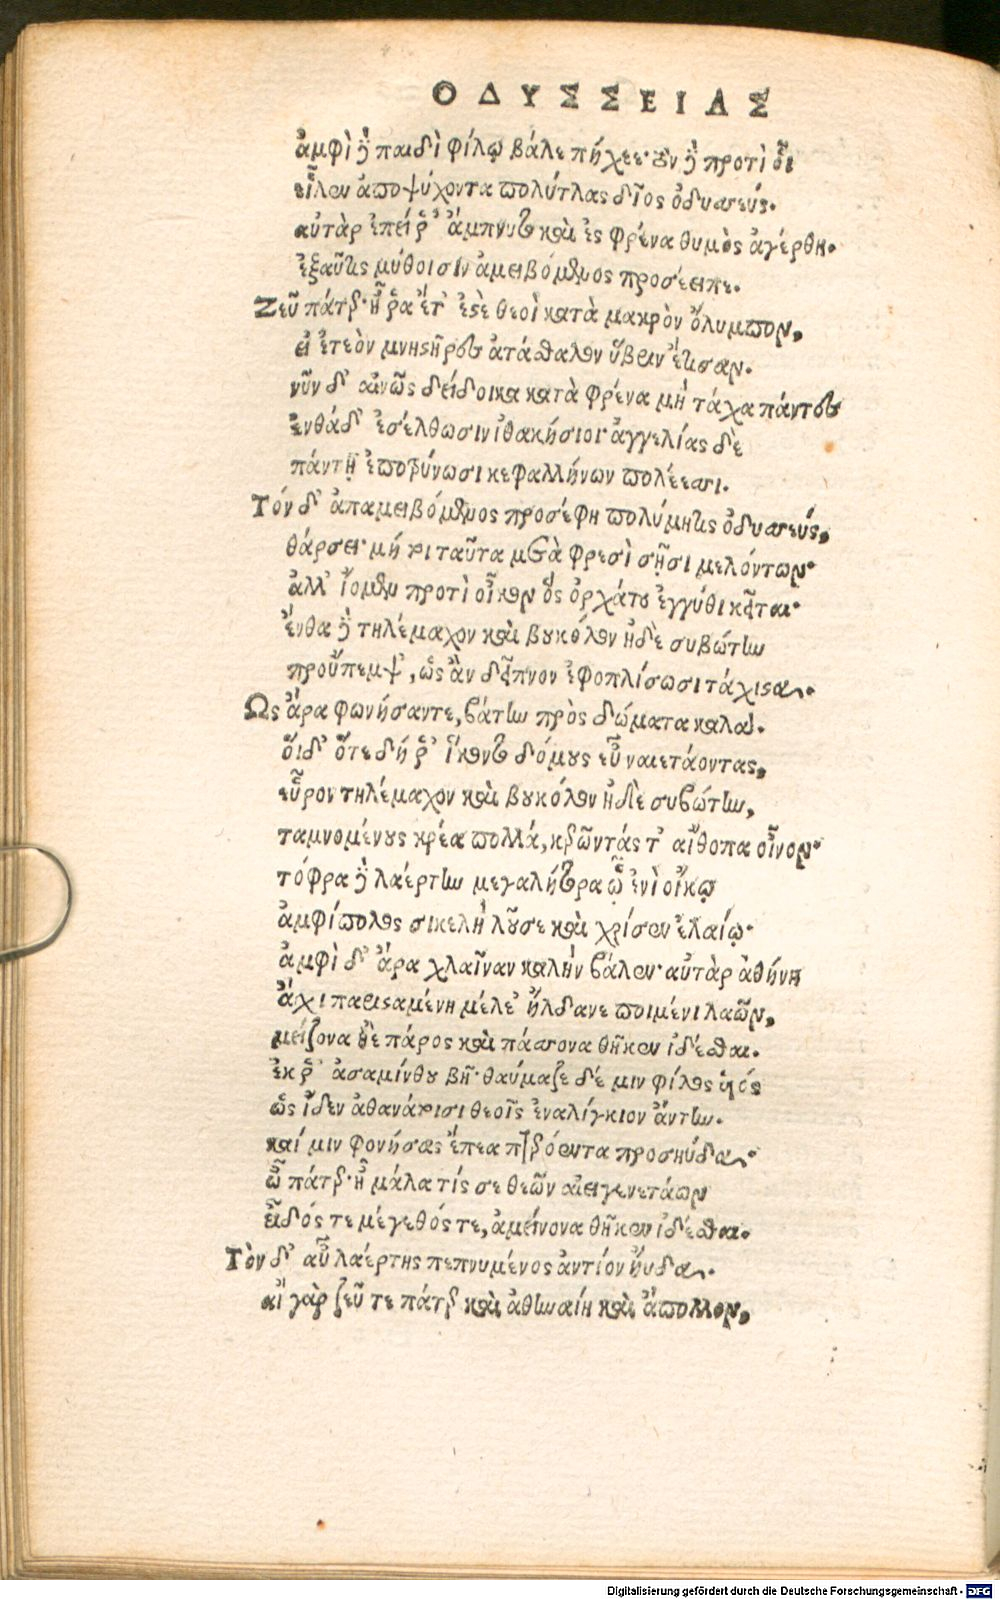 ΟΔΥΣΣΕΙΑΣ
ἀμφὶ δὲ παιδὶ φίλῳ βάλε πήχεε· τὸν δὲ προτὶ οἷ
εἷλεν ἀποψύχοντα πολύτλας δῖος ὀδυσσεύς.
αὐτὰρ ἐπεί ῥ' ἄμπνυτο καὶ ἐς φρένα θυμὸς ἀγέρθη.
ἐξαῦτις μύθοισιν ἀμειβόμενος προσέειπε.
Ζεῦ πάτερ· ἦ ῥα ἔτ' ἐστὲ θεοὶ κατὰ μακρὸν ὄλυμπον,
εἰ ἐτεὸν μνηστῆρες ἀτάσθαλον ὕβριν ἔτισαν.
νῦν δ' αἰνῶς δείδοικα κατὰ φρένα μὴ τάχα πάντες
ἐνθάδ' ἐσέλθωσιν ἰθακήσιοι· ἀγγελίας δὲ
πάντῃ ἐποτρύνωσι κεφαλλήνων πολέεσσι.
Τόν δ' ἀπαμειβόμενος προσέφη πολύμητις ὀδυσσεύς,
θάρσει· μή τι ταῦτα μετὰ φρεσὶ σῇσι μελόντων·
ἀλλ' ἴομεν προτὶ οἶκον ὃς ὀρχάτου ἐγγύθι κεῖται·
ἔνθα δὲ τηλέμαχον καὶ βουκόλον ἠδὲ συβώτην
προὔπεμψ', ὡς ἂν δεῖπνον ἐφοπλίσωσι τάχιστα.
Ως ἄρα φωνήσαντε, βάτην πρὸς δώματα καλά.
οἵδ' ὅτε δή ῥ' ἵκοντο δόμους εὖ ναιετάοντας,
εὗρον τηλέμαχον καὶ βουκόλον ἠδὲ συβώτην,
ταμνομένους κρέα πολλά, κερῶντάς τ' αἴθοπα οἶνον·
τόφρα δὲ λαέρτην μεγαλήτορα ᾧ ἐνὶ οἴκῳ
ἀμφίπολος σικελὴ λοῦσε καὶ χρίσεν ἐλαίῳ·
ἀμφὶ δ' ἄρα χλαῖναν καλὴν βάλεν· αὐτὰρ ἀθήνη
ἄγχι παρισταμένη μέλε' ἤλδανε ποιμένι λαῶν,
μείζονα δὲ πάρος καὶ πάσσονα θῆκεν ἰδέσθαι.
ἐκ ῥ' ἀσαμίνθου βῆ· θαύμαζε δέ μιν φίλος υἱός
ὡς ἴδεν ἀθανάτοισι θεοῖς ἐναλίγκιον ἄντην.
καί μιν φονήσας ἔπεα πτερόεντα προσηύδα·
ὦ πάτερ· ἦ μάλα τίς σε θεῶν αἰειγενετάων
εἶδός τε μέγεθός τε, ἀμείνονα θῆκεν ἰδέσθαι.
Τὸν δ' αὖ λαέρτης πεπνυμένος ἀντίον ηὔδα.
αἲ γὰρ ζεῦ τε πάτερ καὶ ἀθηναίη καὶ ἄπολλον,
Digitalisierung gefördert durch die Deutsche Forschungsgemeinschaft - DFG